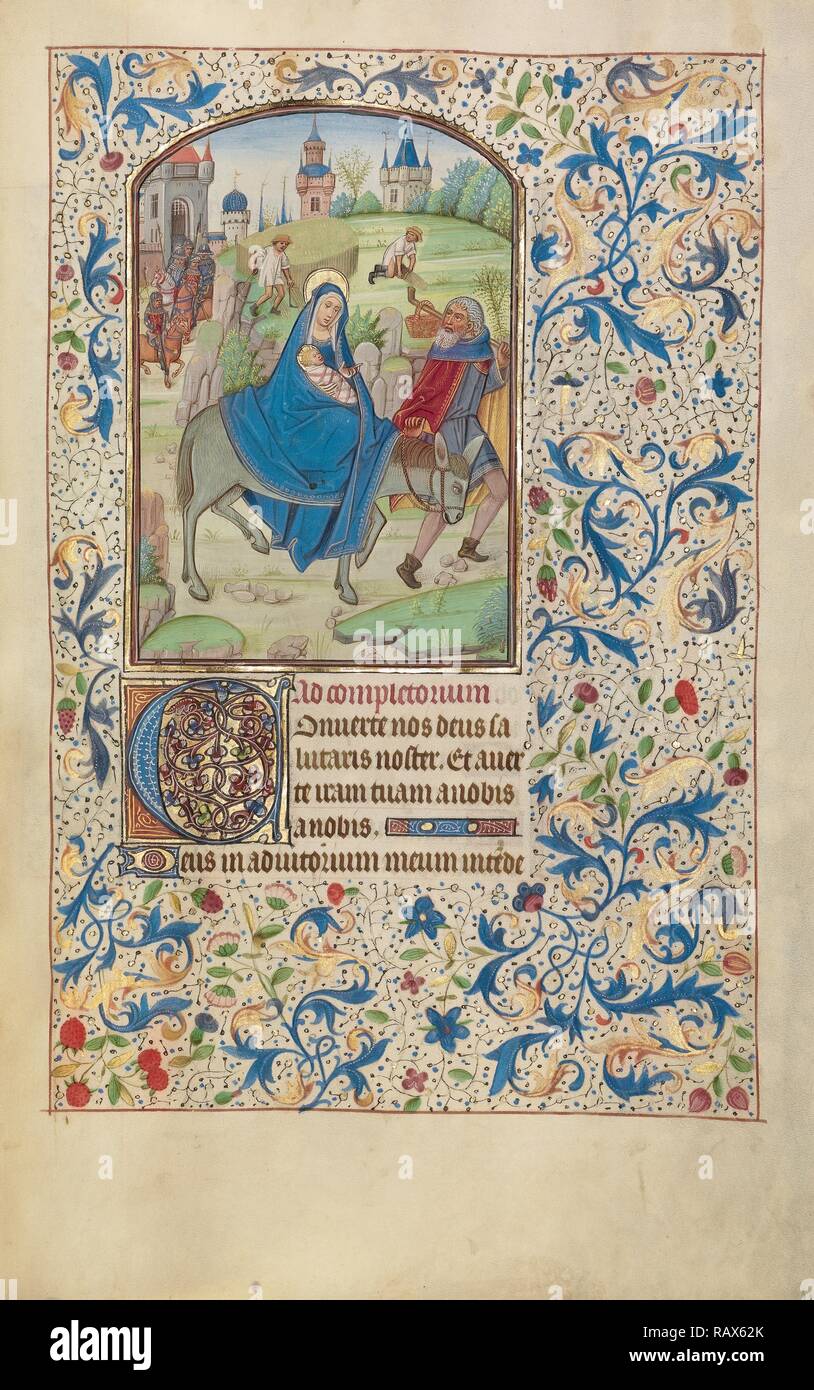 Ad completorium
Onuerte nos deus sa
lutaris noster. Et auer
te iram tuam a nobis
a nobis.
eus in adiutorium meum intēde
alamy
Image ID: RAX62K
www.alamy.com